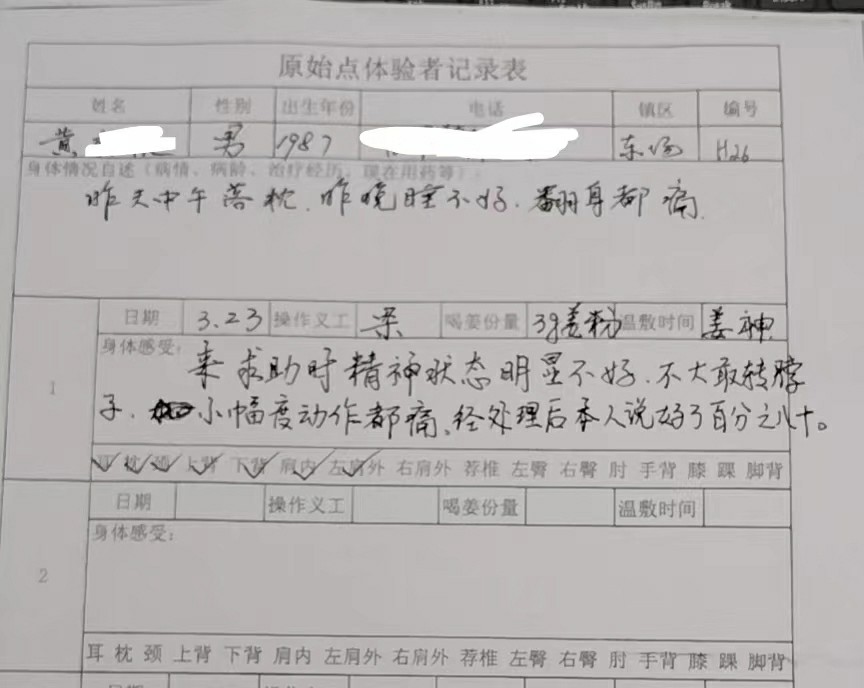 原始点体验者记录表
姓名 性别 出生年份 电话 镇区 编号
黄 男 1987 东 H26
身体情况自述（病情、病龄、治疗经历、现在用药等）：
昨天中午落枕.昨晚睡不好.翻身都痛.
1 日期 3.23 操作义工 梁 喝姜份量 3g姜粉 温敷时间 姜神
身体感受：
来求助时精神状态明显不好.不大敢转脖
子. 小幅度动作都痛、经处理后本人说好了百分之八十。
耳 枕 颈 上背 下背 肩内 左肩外 右肩外 荐椎 左臀 右臀 肘 手背 膝 踝 脚背
2 日期 操作义工 喝姜份量 温敷时间
身体感受：
耳 枕 颈 上背 下背 肩内 左肩外 右肩外 荐椎 左臀 右臀 肘 手背 膝 踝 脚背